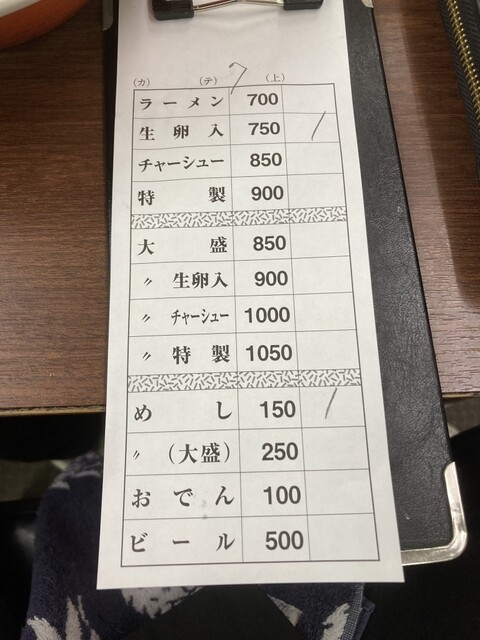 (カ) (テ) 7 (上)
ラーメン 700
生卵入 750 /
チャーシュー 850
特製 900
大盛 850
〃 生卵入 900
〃 チャーシュー 1000
〃 特製 1050
めし 150 /
〃 (大盛) 250
おでん 100
ビール 500